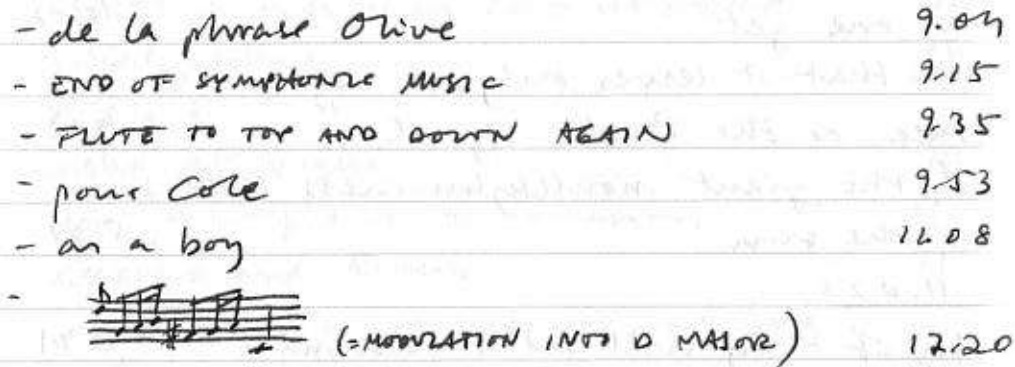 - de la phrase Olive 9.04
- END OF SYMPHONIC MUSIC 9.15
- FLUTE TO TOP AND DOWN AGAIN 9.35
- pour Cole 9.53
- as a boy 11.08
- (=MODULATION INTO D MAJOR) 12.20